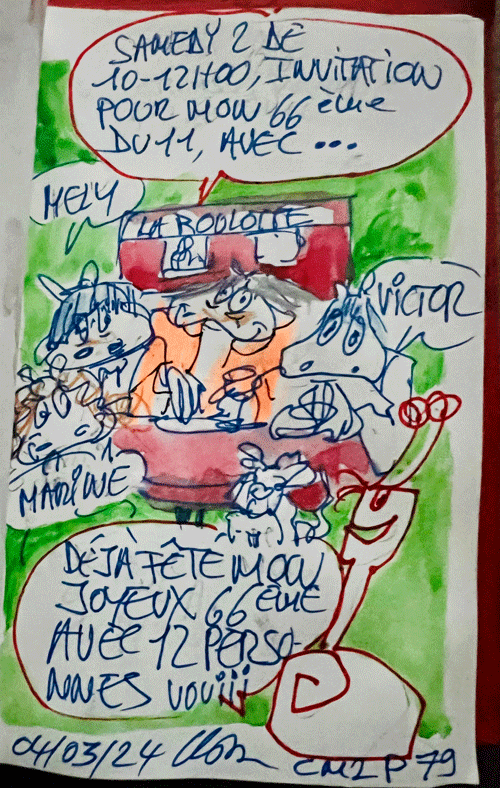 SAMEDY 2 DE
10-12H00, INVITATION
POUR MON 66 ème
DU 11, AVEC...
MELY
LA ROULOTTE
VICTOR
MARINE
DÉJÀ FÊTÉ MON
JOYEUX 66 ÈME
AVEC 12 PERSO-
NNES VOUIIII
04/03/24
CM2 P 79